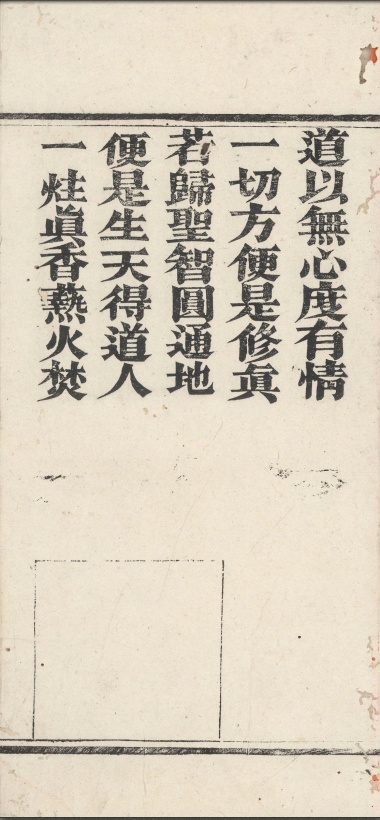 道以無心度有情
一切方便是修眞
若歸聖智圓通地
便是生天得道人
一炷眞香爇火焚